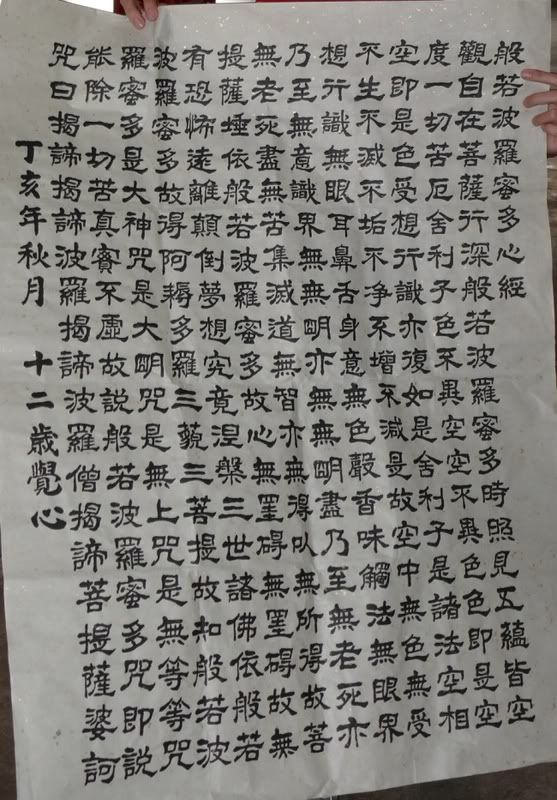 般若波羅蜜多心經
觀自在菩薩行深般若波羅蜜多時照見五蘊皆空
度一切苦厄舍利子色不異空空不異色色即是空
空即是色受想行識亦復如是舍利子是諸法空相
不生不滅不垢不净不增不減是故空中無色無受
想行識無眼耳鼻舌身意無色聲香味觸法無眼界
乃至無意識界無無明亦無無明盡乃至無老死亦
無老死盡無苦集滅道無智亦無得以無所得故菩
提薩埵依般若波羅蜜多故心無罣礙無罣礙故無
有恐怖遠離顛倒夢想究竟涅槃三世諸佛依般若
波羅蜜多故得阿耨多羅三藐三菩提故知般若波
羅蜜多是大神咒是大明咒是無上咒是無等等咒
能除一切苦真實不虛故說般若波羅蜜多咒即說
咒曰揭諦揭諦波羅揭諦波羅僧揭諦菩提薩婆訶
丁亥年秋月 十二歲覺心